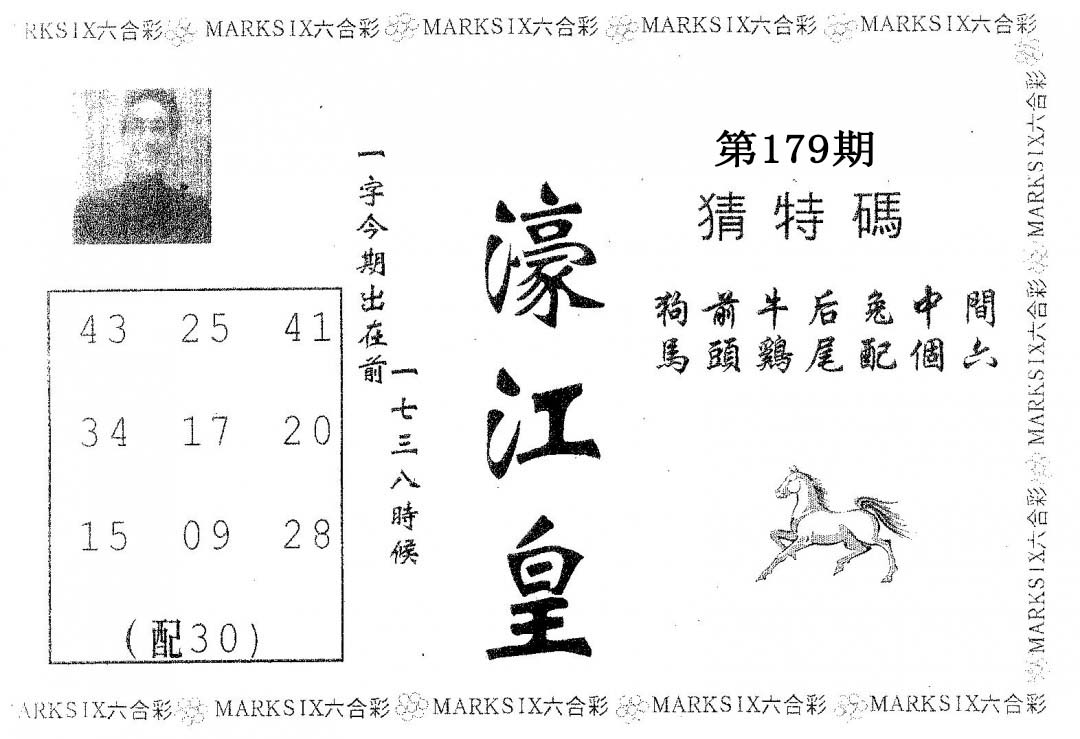 RKSIX六合彩 MARKSIX六合彩 MARKSIX六合彩 MARKSIX六合彩 MARKSIX六合彩
第179期
猜特碼
狗前牛后兔中間
馬頭鷄尾配個六
濠江皇
一字今期出在前
一七三八時候
43 25 41
34 17 20
15 09 28
(配30)
MARKSIX六合彩 MARKSIX六合彩 MARKSIX六合彩
ARKSIX六合彩 MARKSIX六合彩 MARKSIX六合彩 MARKSIX六合彩 MARKSIX六合彩